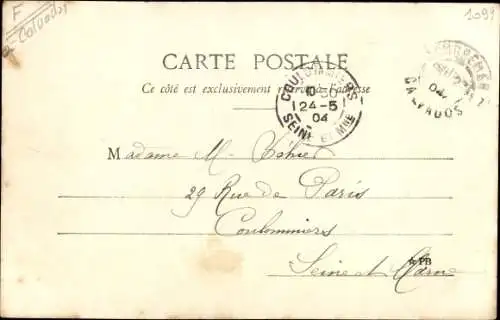 F
Calvados
1099
CARTE POSTALE
Ce côté est exclusivement réservé à l'adresse
COULOMMIERS
24-5
04
SEINE ET MNE
04
CALVADOS
Madame M.
29 Rue de Paris
Coulommiers
Seine et Marne
PB